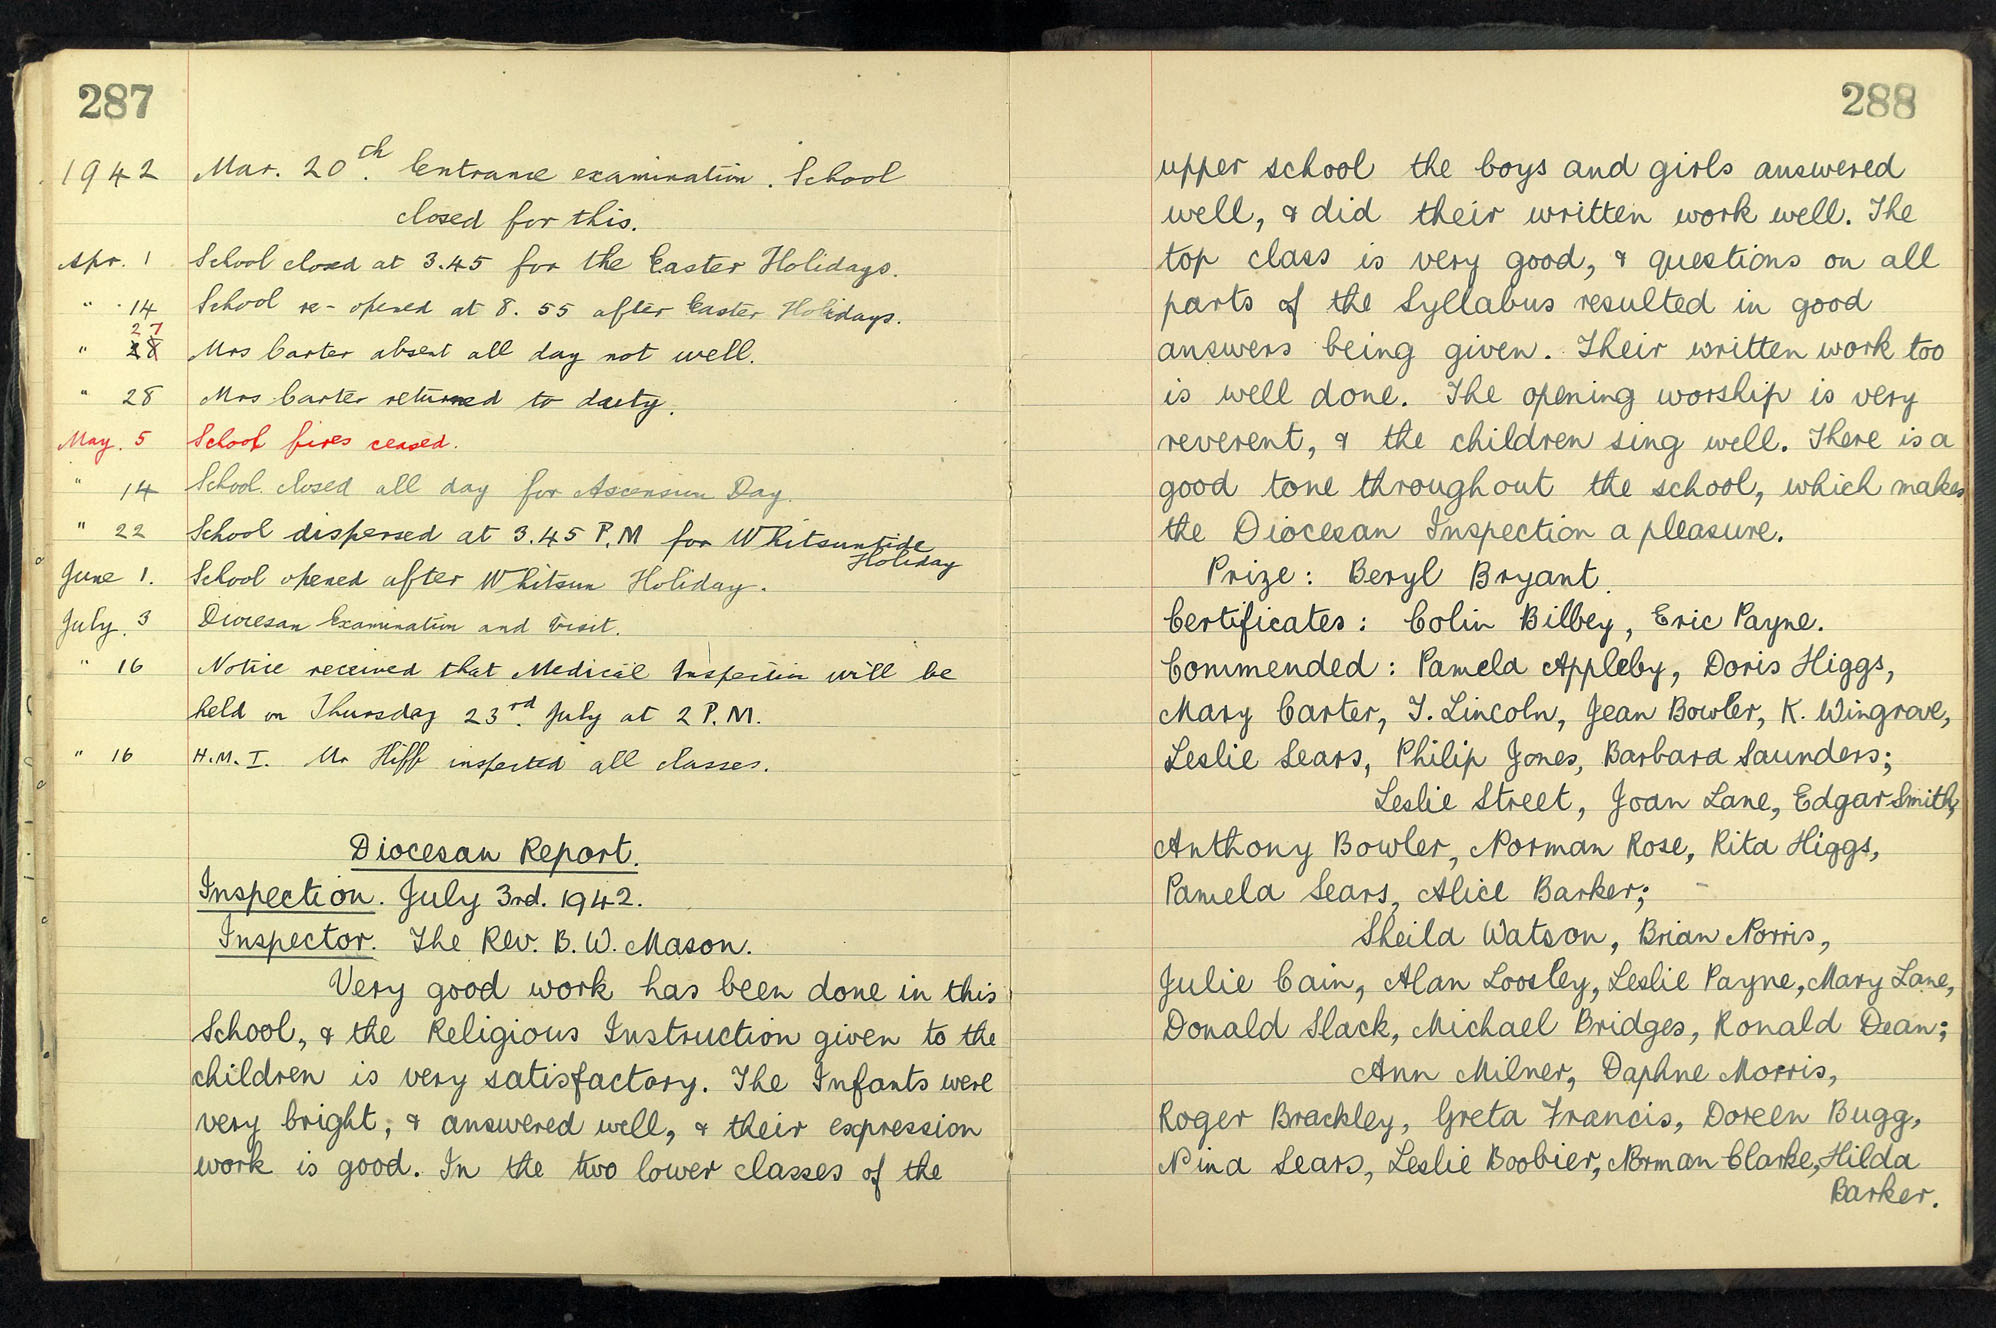 287
1942 Mar. 20th. Entrance examination. School
closed for this.
Apr. 1 School closed at 3.45 for the Easter Holidays.
" 14 School re-opened at 8.55 after Easter Holidays.
27
" 28 Mrs Carter absent all day not well.
" 28 Mrs Carter returned to duty.
May. 5 School fires ceased.
" 14 School closed all day for Ascension Day.
" 22 School dispersed at 3.45 P.M for Whitsuntide
Holiday
June 1. School opened after Whitsun Holiday.
July. 3 Diocesan Examination and Visit.
" 16 Notice received that Medical Inspection will be
held on Thursday 23rd. July at 2 P.M.
" 16 H.M.I. Mr Iliff inspected all classes.
Diocesan Report.
Inspection. July 3rd. 1942.
Inspector. The Rev. B. W. Mason.
Very good work has been done in this
School, & the Religious Instruction given to the
children is very satisfactory. The Infants were
very bright, & answered well, & their expression
work is good. In the two lower classes of the
288
upper school the boys and girls answered
well, & did their written work well. The
top class is very good, & questions on all
parts of the Syllabus resulted in good
answers being given. Their written work too
is well done. The opening worship is very
reverent, & the children sing well. There is a
good tone throughout the school, which makes
the Diocesan Inspection a pleasure.
Prize: Beryl Bryant.
Certificates: Colin Bilbey, Eric Payne.
Commended: Pamela Appleby, Doris Higgs,
Mary Carter, T. Lincoln, Jean Bowler, K. Wingrove,
Leslie Sears, Philip Jones, Barbara Saunders;
Leslie Street, Joan Lane, Edgar Smith,
Anthony Bowler, Norman Rose, Rita Higgs,
Pamela Sears, Alice Barker;
Sheila Watson, Brian Norris,
Julie Cain, Alan Loosley, Leslie Payne, Mary Lane,
Donald Slack, Michael Bridges, Ronald Dean;
Ann Milner, Daphne Morris,
Roger Brackley, Greta Francis, Doreen Bugg,
Nina Sears, Leslie Boobier, Norman Clarke, Hilda
Barker.